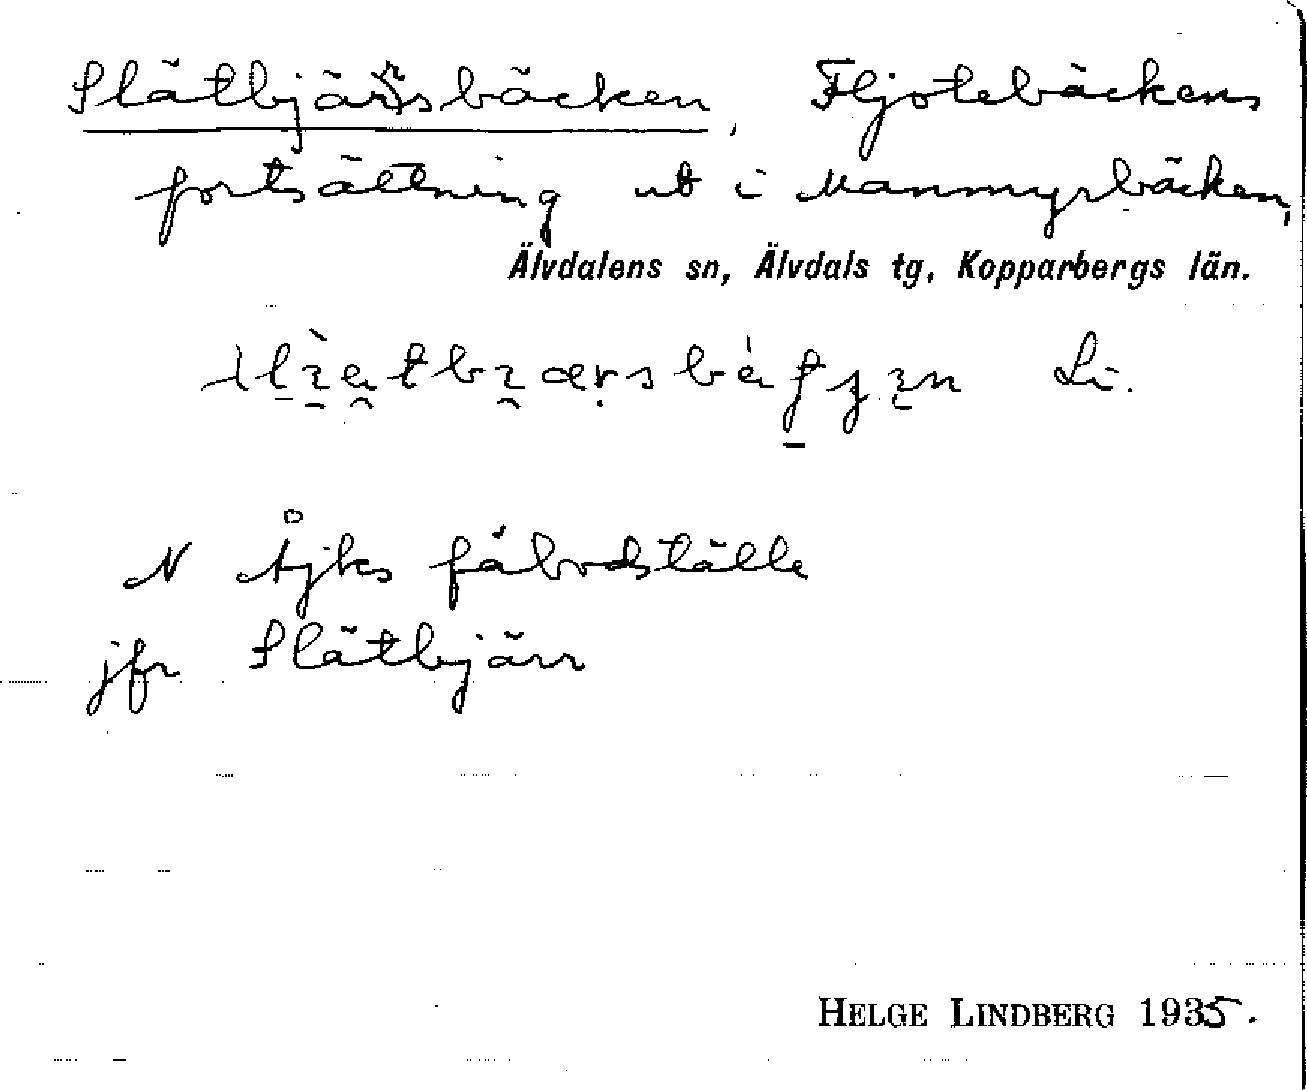 Slätbjärrsbäcken, Fljotebäckens
fortsättning ut i Manmyrbäcken,
Älvdalens sn, Älvdals tg, Kopparbergs län.
Li.
N Åjks fäbodställe
jfr Slätbjärr
HELGE LINDBERG 1935.